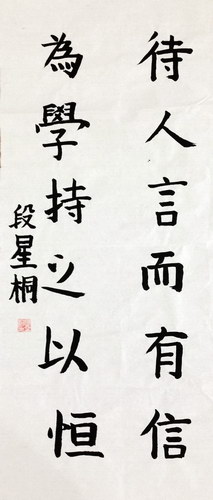 待人言而有信
為學持之以恒
段星桐